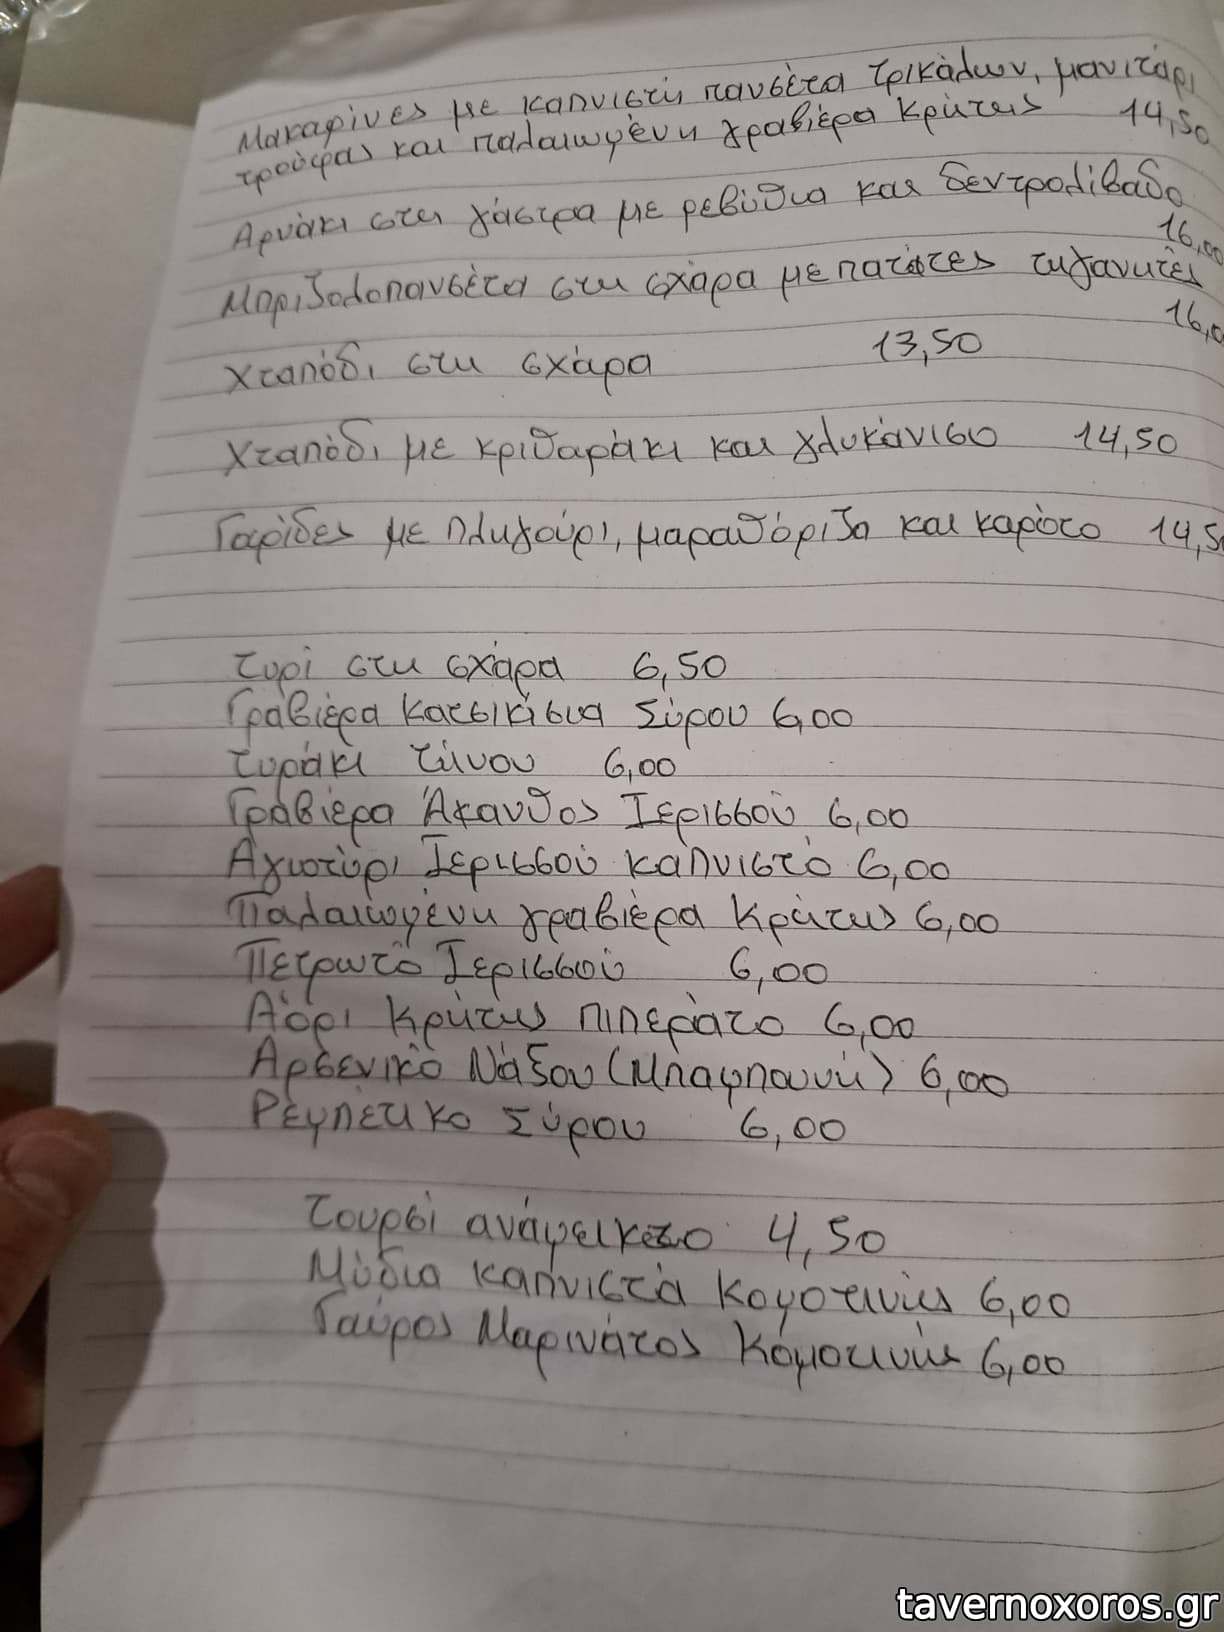 Μακαρίνες με καπνιστή πανσέτα Τρικάλων, μανιτάρι
τρούφας και παλαιωμένη γραβιέρα Κρήτης 14,50
Αρνάκι στη γάστρα με ρεβύθια και δεντρολίβαδο
16,00
Μπριζολοπανσέτα στη σχάρα με πατάτες τηγανιτές
16,0
Χταπόδι στη σχάρα 13,50
Χταπόδι με κριθαράκι και γλυκάνισο 14,50
Γαρίδες με πλυγούρι, μαραθόριζα και καρότο 14,50
Τυρί στη σχάρα 6,50
Γραβιέρα Κατσικίσια Σύρου 6,00
Τυράκι Τήνου 6,00
Γραβιέρα Άκανθος Ιερισσού 6,00
Αγιοτύρι Ιερισσού καπνιστό 6,00
Παλαιωμένη γραβιέρα Κρήτης 6,00
Πετρωτό Ιερισσού 6,00
Αόρι Κρήτης πιπεράτο 6,00
Αρσενικό Νάξου (Μπαμπουνή) 6,00
Ρεμπέτικο Σύρου 6,00
Τουρσί ανάμεικτο 4,50
Μύδια καπνιστά Κομοτινής 6,00
Γαύρος Μαρινάτος Κομοτινής 6,00
tavernoxoros.gr